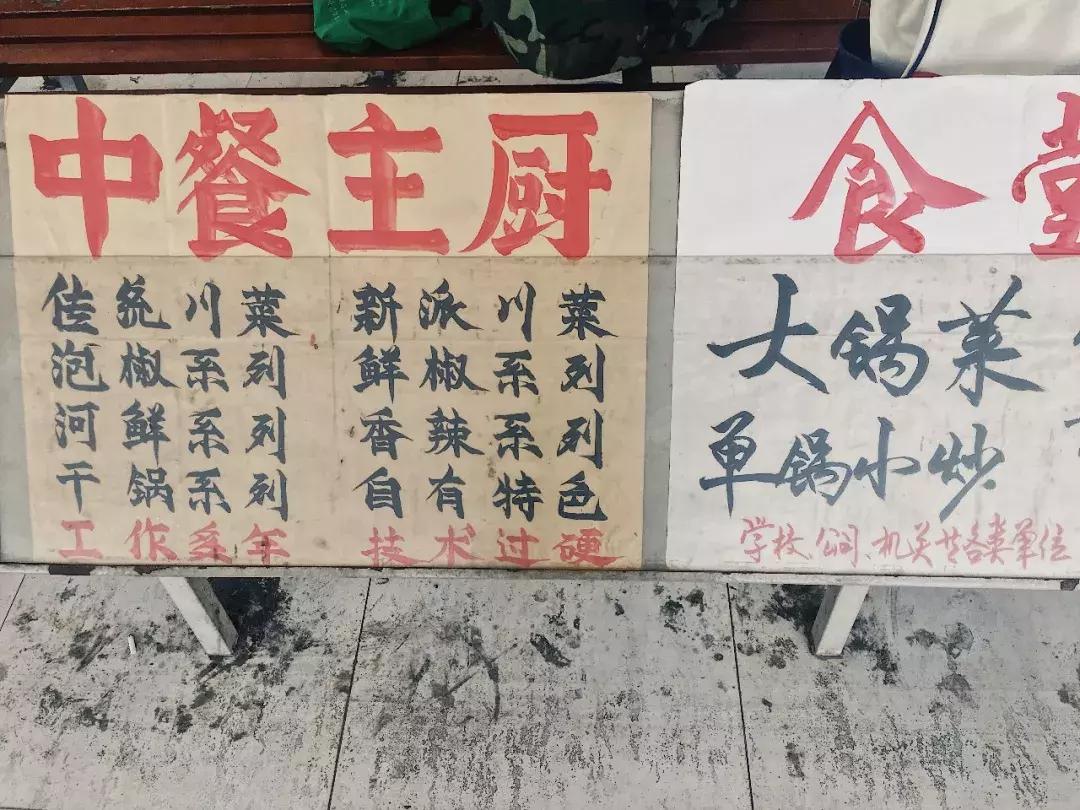 中餐主厨
传统川菜 新派川菜
泡椒系列 鲜椒系列
河鲜系列 香辣系列
干锅系列 自有特色
工作多年 技术过硬
食堂
大锅菜
单锅小炒
学校、公司、机关各类单位